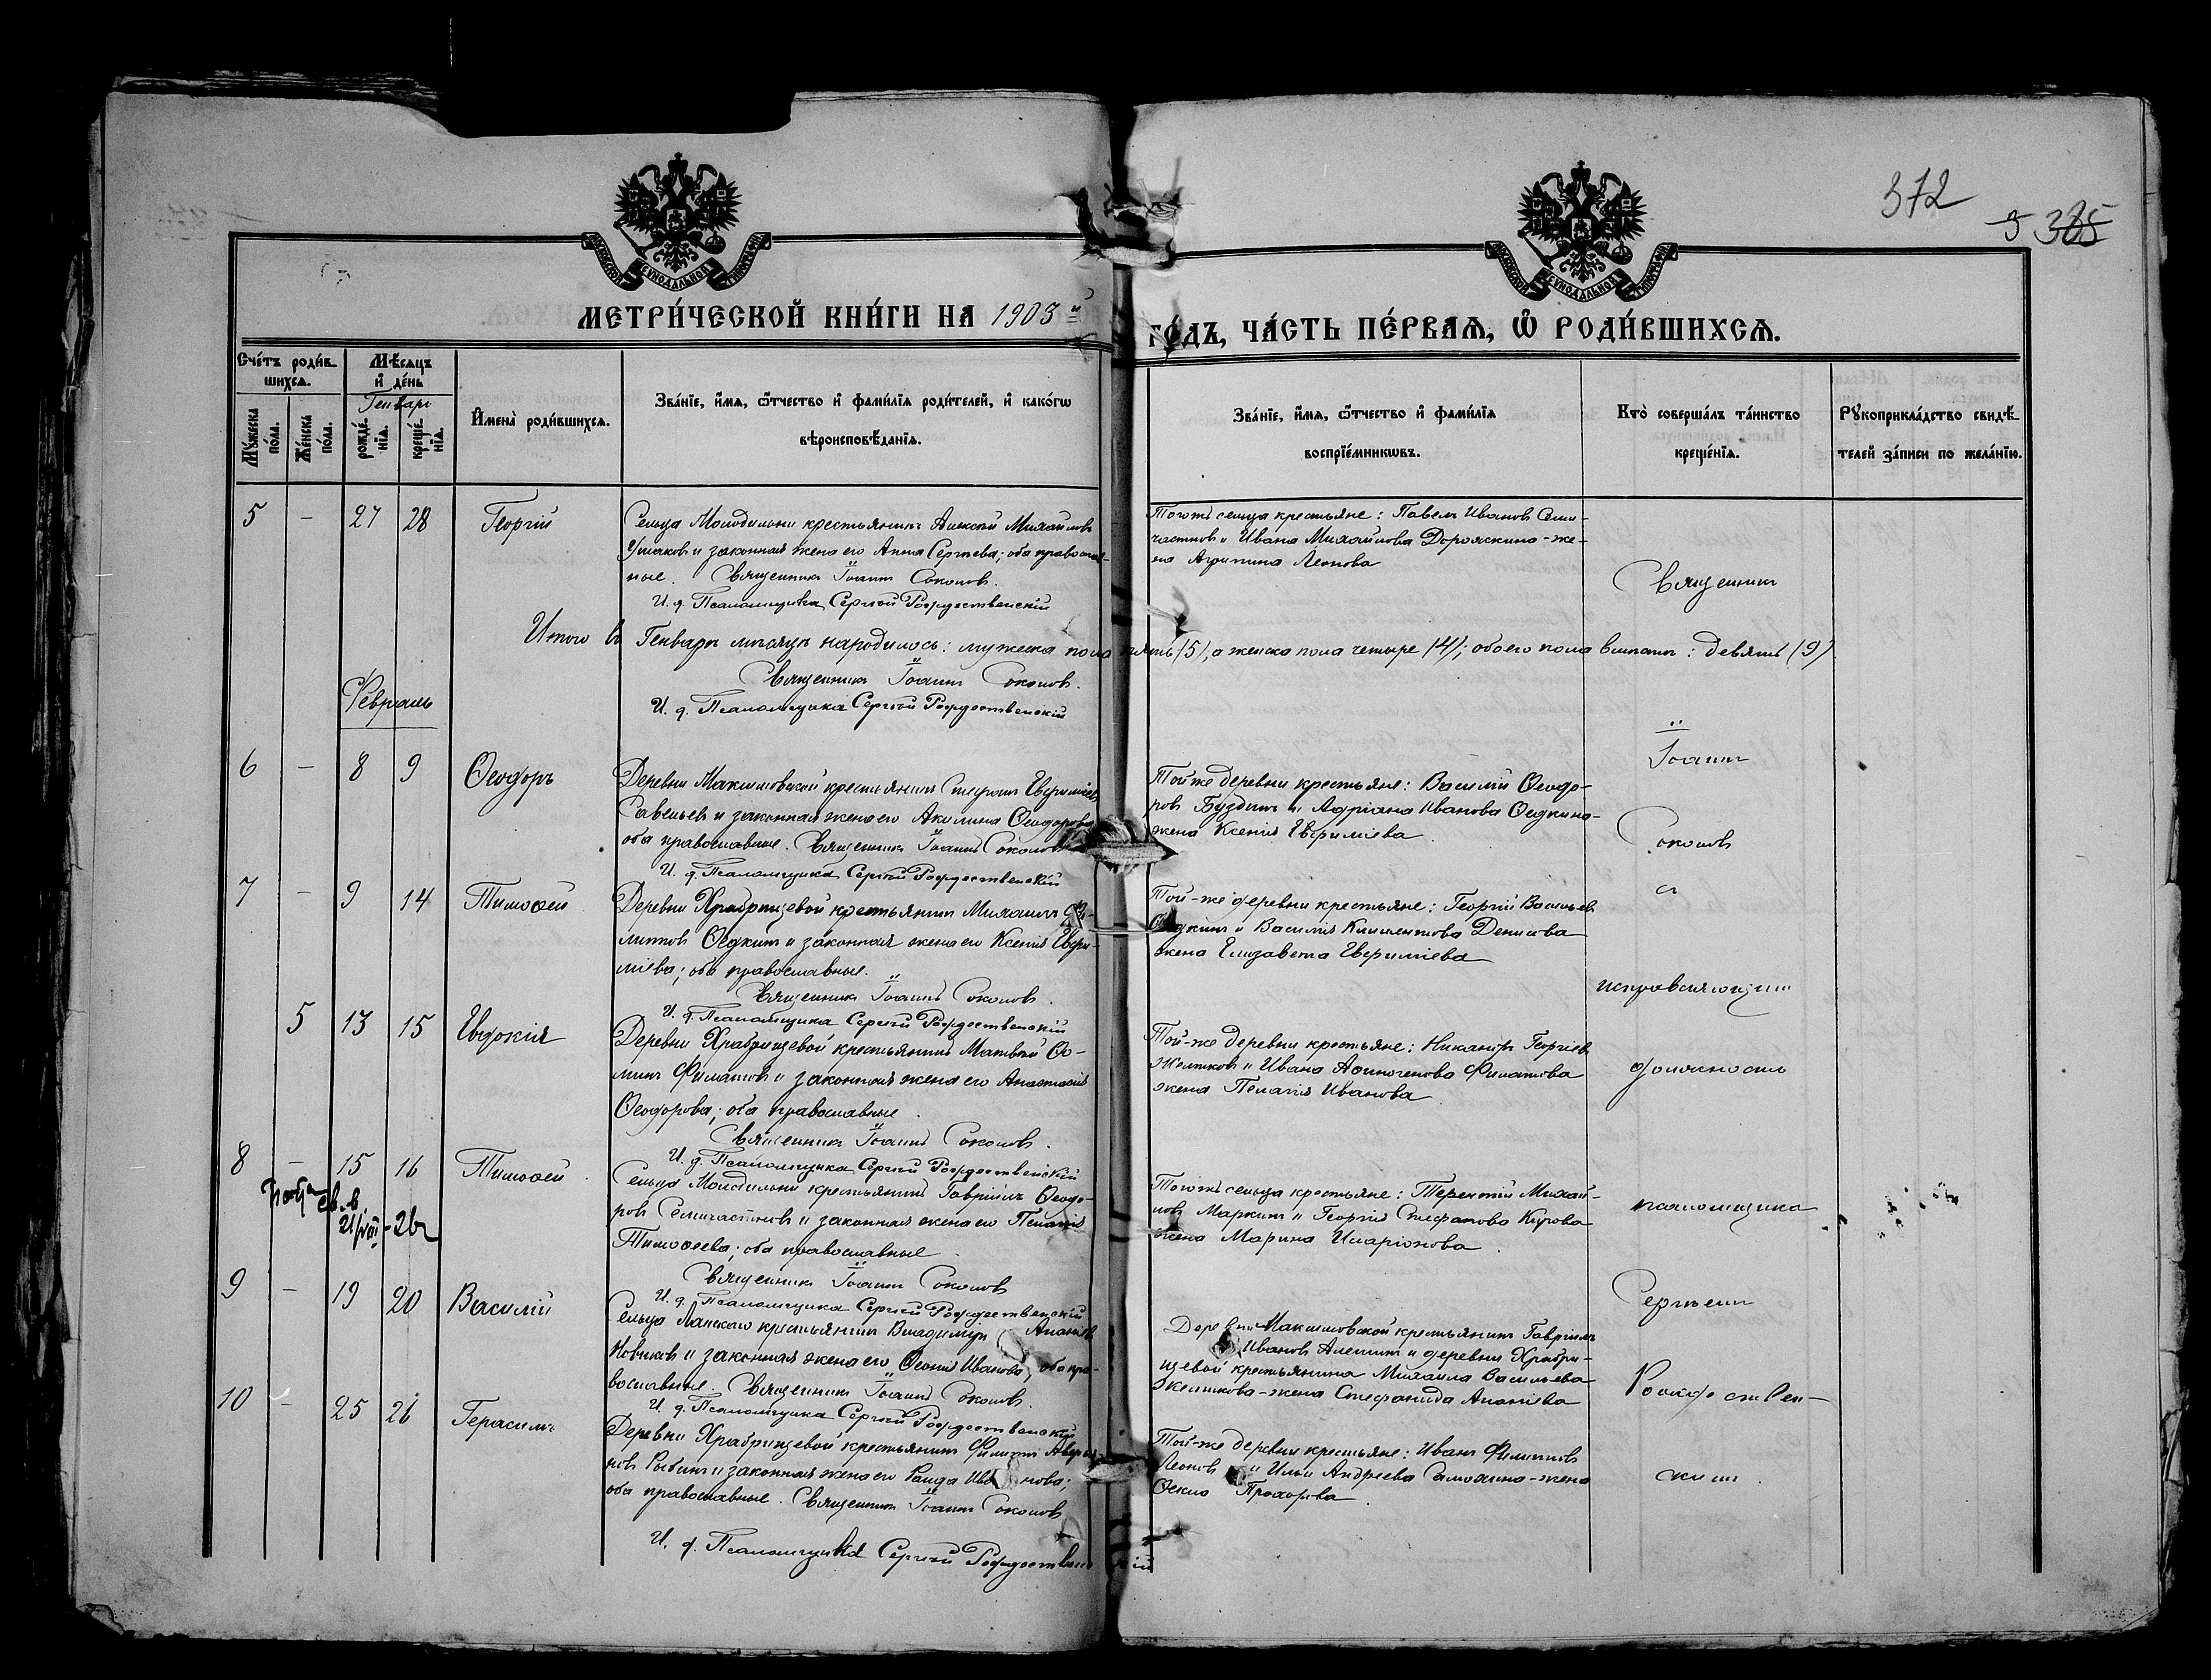 372
5 385
МОСКОВСКОЙ СУНОДАЛЬНОЙ ТИПОГРАФІИ
МОСКОВСКОЙ СУНОДАЛЬНОЙ ТИПОГРАФІИ
МЕТРИ́ЧЕСКОЙ КНИ́ГИ НА 1903й
ГО́ДЪ, ЧА́СТЬ ПЕ́РВАѦ, Ѽ РОДИ́ВШИХСѦ.
Сче́тъ роди́в
шихсѧ.
Мꙋ́жеска по́ла.
Же́нска по́ла.
Мѣ́сѧцъ
и҆ де́нь
Генварь
рожде́нїѧ.
креще́нїѧ.
И҆мена̀ роди́вшихсѧ.
Зва́нїе, и҆́мѧ, ѻ҆́тчество и҆ фами́лїѧ роди́телей, и҆ како́гѡ
вѣроисповѣ́данїѧ.
Зва́нїе, и҆́мѧ, ѻ҆́тчество и҆ фами́лїѧ
воспрїе́мникѡвъ.
Кто̀ соверша́лъ та́инство
креще́нїѧ.
Рꙋкоприкла́дство свидѣ́
телей за́писи по жела́нїю.
5 - 27 28 Георгій
Сельца Молодильни крестьянинъ Алексѣй Михайловъ
Ушаков и законная жена его Анна Сергѣева; оба православ-
ные. Священникъ Іоаннъ Соколовъ.
И. д. Псаломщика Сергѣй Рождественскій
Тогожъ сельца крестьяне: Павелъ Иванов Семи-
частнов и Ивана Михайлова Дорожкина - же-
на Агрипина Леонова
Священникъ
Итого въ Генварѣ мѣсяцѣ народилось: мужеска пола пять (5), а женска пола четыре (4); обоего пола вмѣстѣ: девять (9).
Священникъ Іоаннъ Соколовъ.
И. д. Псаломщика Сергѣй Рождественскій
Февраль
6 - 8 9 Ѳеодоръ
Деревни Максимовской крестьянинъ Стефанъ Евфиміев
Савельев и законная жена его Акилина Ѳеодорова
оба православные. Священникъ Іоаннъ Соколовъ
И. д. Псаломщика Сергѣй Рождественскій
Той же деревни крестьяне: Василій Ѳеодо-
ров Буздинъ и Адріана Иванова Ѳедкина-
жена Ксенія Евфиміева.
Іоаннъ
Соколовъ
7 - 9 14 Тимоѳей
Деревни Храбрищевой крестьянинъ Михаилъ Фи-
липпов Ѳедкинъ и законная жена его Ксенія Евфи-
міева; оба православные.
Священникъ Іоаннъ Соколовъ.
И. д. Псаломщика Сергѣй Рождественскій
Той-же деревни крестьяне: Георгій Васильев
Ѳедкинъ и Василія Климентова Денисова
жена Елизавета Евфиміева
съ
исправляющим
5 13 15 Евдокія
Деревни Храбрищевой крестьянинъ Матвѣй Ѳо-
минъ Филатов и законная жена его Анастасія
Ѳеодорова; оба православные.
Священникъ Іоаннъ Соколовъ.
И. д. Псаломщика Сергѣй Рождественскій
Той-же деревни крестьяне: Никаноръ Георгіев
Желтков и Ивана Аѳиногенова Филатова
жена Пелагія Иванова
должность
8 - 15 16 Тимоѳей.
Сельца Молодильни крестьянинъ Гавріилъ Ѳеодо-
ров Семичастнов и законная жена его Пелагія
Тимоѳеева; оба православные.
Священникъ Іоаннъ Соколовъ
И. д. Псаломщика Сергѣй Рождественскій
Тогожъ сельца крестьяне: Терентій Михай-
лов Маркинъ и Георгія Стефанова Курова
жена Марина Иларіонова.
псаломщика
9 - 19 20 Василій
Сельца Ланского крестьянинъ Владиміръ Ананіев
Новиков и законная жена его Ѳеонія Иванова; оба пра-
вославные. Священникъ Іоаннъ Соколовъ.
И. д. Псаломщика Сергѣй Рождественскій
Деревни Максимовской крестьянинъ Гавріилъ
Иванов Алешинъ и деревни Храбри-
щевой крестьянина Михаила Васильева
Желткова - жена Стефанида Ананіева
Сергѣемъ
Рождествен-
10 - 25 26 Герасимъ
Деревни Храбрищевой крестьянинъ Филиппъ Аверья-
нов Рыбинъ и законная жена его Раида Иванова;
оба православные. Священникъ Іоаннъ Соколовъ
И. д. Псаломщика Сергѣй Рождественскій
Той-же деревни крестьяне: Иванъ Филиппов
Леонов и Ильи Андреева Самохина - жена
Ѳекла Прохорова.
скимъ.